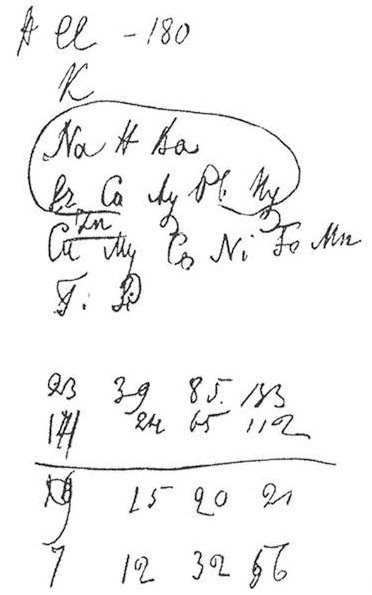 Cl - 180
K
Na H Ba
Ca Ag Pb Hg
Zn
Cu Mg Co Ni Fe Mn
23 39 85. 133
24 65 112
15 20 21
7 12 32